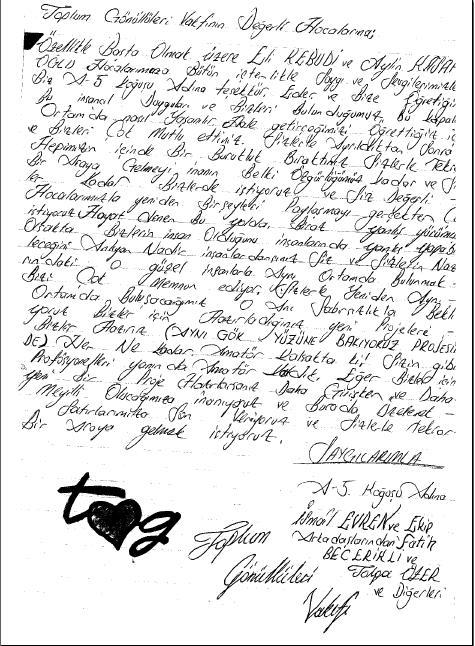 Toplum Gönüllüleri Vakfının Değerli Hocalarına;
Özellikle Başta Olmak üzere Eli KEBUDİ ve Aylin
Hocalarımıza Bütün içtenlikle Saygı ve Sevgilerimizle
Biz A-5 Koğuşu Adına teşekkür Eder ve Bize Öğrettiğiniz
Bu insancıl Duygular ve Bizleri Bulunduğumuz Bu kapalı
Ortamda nasıl Yaşanılır Hale getireceğimizi Öğrettiğiniz
ve Bizleri Çok Mutlu ettiniz. Sizlerle Ayrıldıktan Sonra
Hepimizin içinde Bir Burukluk Bıraktınız Sizlerle Tekrar
Bir Araya Gelmeyi inanın Belki Özgürlüğümüz kadar ve
Kadar Bizlerde istiyoruz ve Siz Değerli
Hocalarımızla yeniden Birşeyleri Paylaşmayı gerçekten
istiyoruz Hayat denen Bu yolda, Biraz
Ortakta Bizlerin insan Olduğunu insanlarında
leceğini Anlıyan Nadir insanlardansınız Siz ve Sizlerin
rındaki O güzel insanlarla Aynı Ortamda Bulunmak
Bizi Çok Memnun ediyor. Sizlerle Yeniden Aynı
Ortamda Buluşacağımız O Anı Sabırsızlıkla Bekli
yoruz Bizler için Hazırladığınız yeni Projelere
Bizler Hazırız (AYNI GÖK YÜZÜNE BAKIYORUZ PROJESİN
DE) Her Ne kadar Amatör Olsakta ki! Sizin gibi
Profösyonelleri yanında Amatör Eğer Bizler için
yeni Bir Proje Hazırlarsanız Daha Girişken ve Daha
Meyilli Olacağımıza inanıyoruz ve Burada
Satırlarımıza Son Veriyoruz ve Sizlerle tekrar
Bir Araya gelmek istiyoruz.
SAYGILARIMLA
A-5. Koğuşu Adına
İsmail EVREN ve Ekip
Arkadaşlarından Fatih
BECERİKLİ ve
Tolga
ve Diğerleri
tog
Toplum
Gönüllüleri
Vakfı